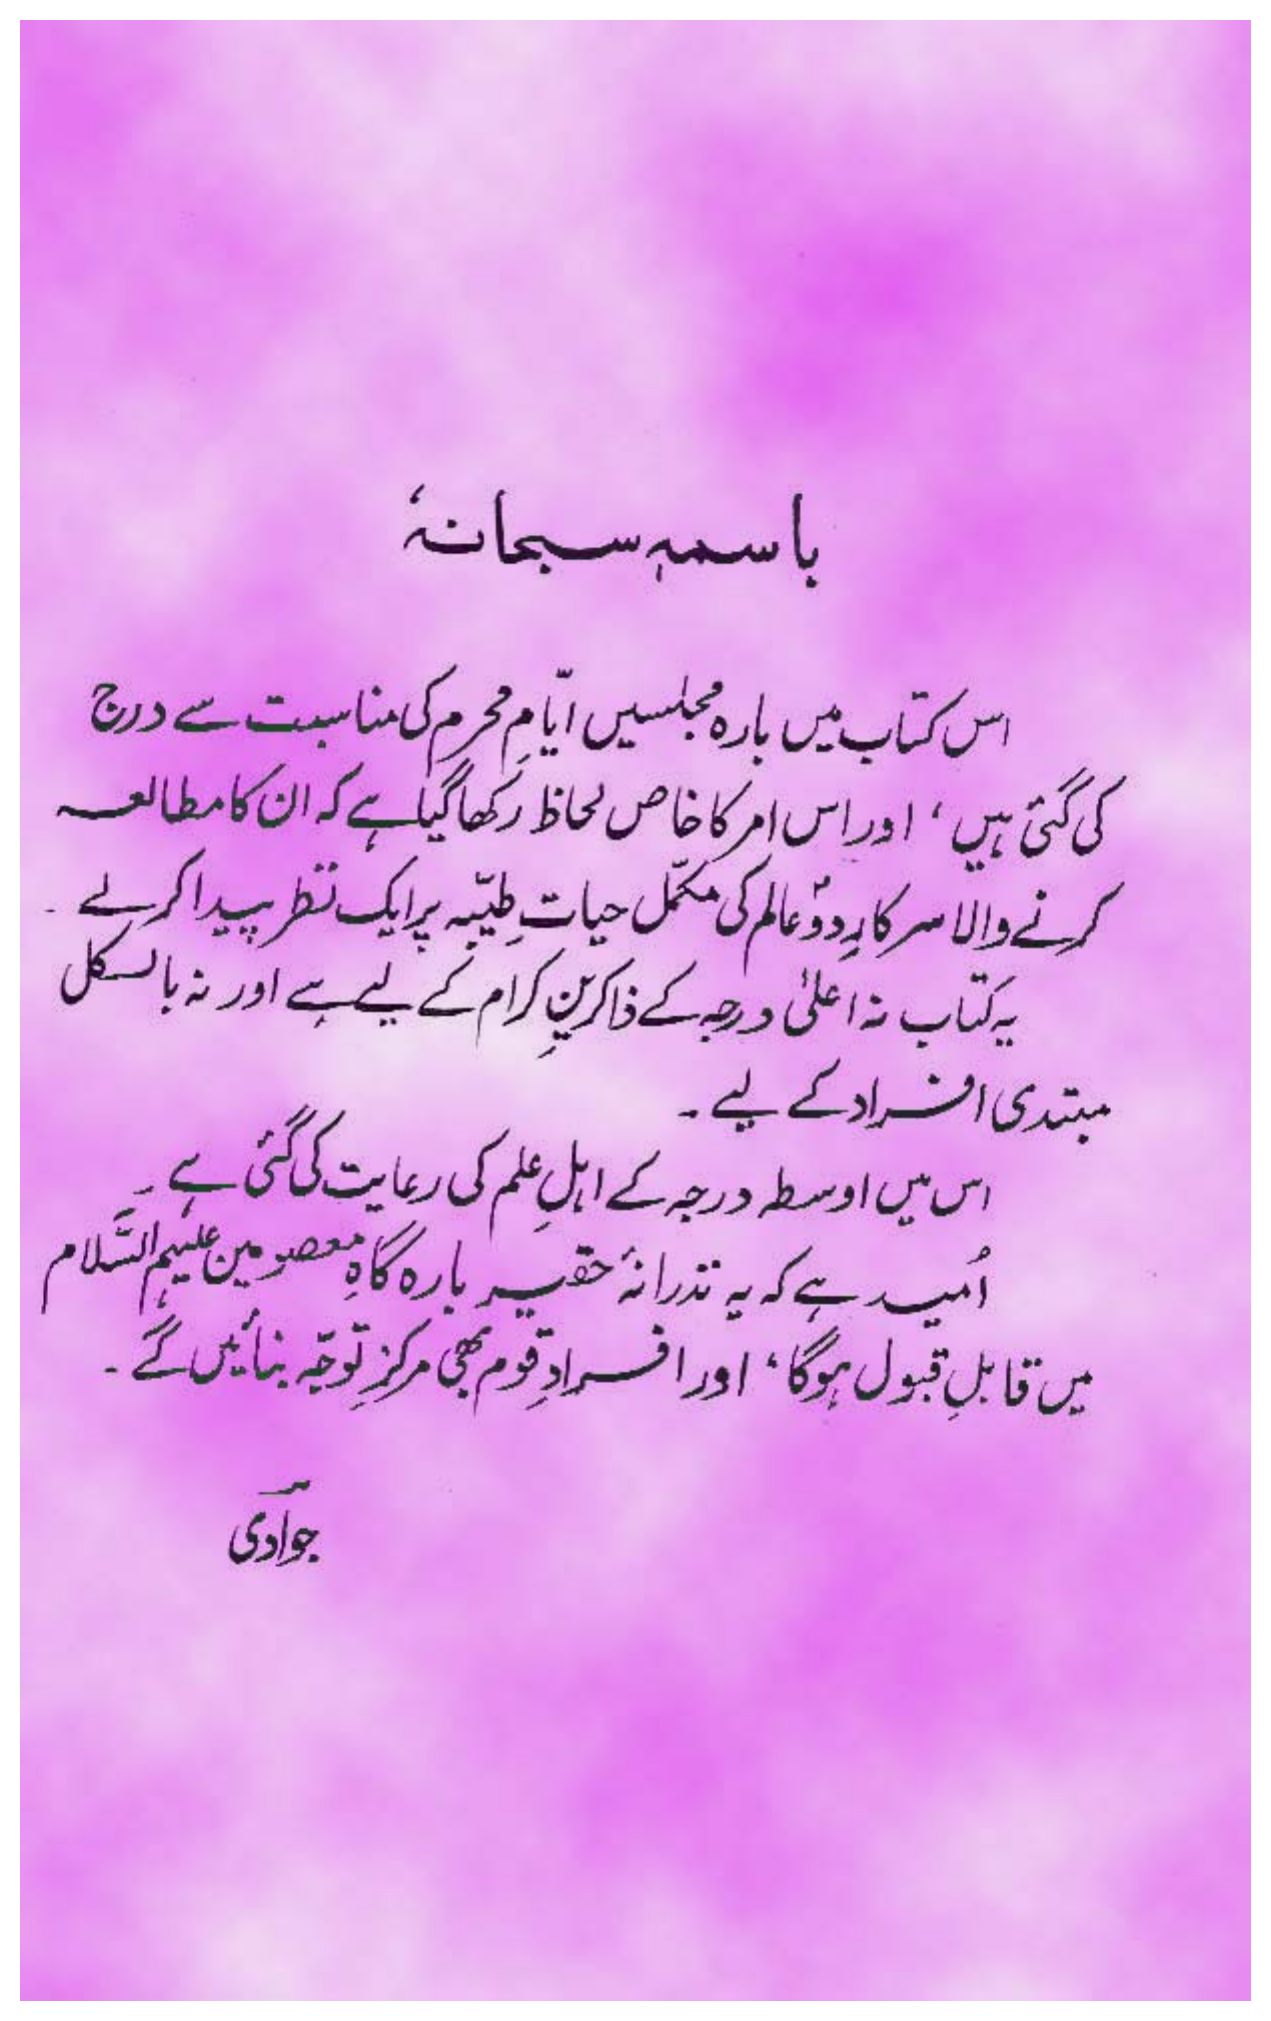 باسمہٖ سبحانہٗ
اس کتاب میں بارہ مجلسیں ایّامِ محرم کی مناسبت سے درج
کی گئی ہیں، اور اس امر کا خاص لحاظ رکھا گیا ہے کہ ان کا مطالعہ
کرنے والا سرکارِ دوؐ عالم کی مکمّل حیاتِ طیّبہ پر ایک نظر پیدا کر لے ۔
یہ کتاب نہ اعلیٰ درجہ کے ذاکرینِ کرام کے لیے ہے اور نہ بالکل
مبتدی افراد کے لیے ۔
اس میں اوسط درجہ کے اہلِ علم کی رعایت کی گئی ہے ۔
اُمید ہے کہ یہ نذرانۂ حقیر بارہ گاہِ معصومین علیہم السَّلام
میں قابلِ قبول ہوگا، اور افرادِ قوم بھی مرکزِ توجّہ بنائیں گے ۔
جوادی